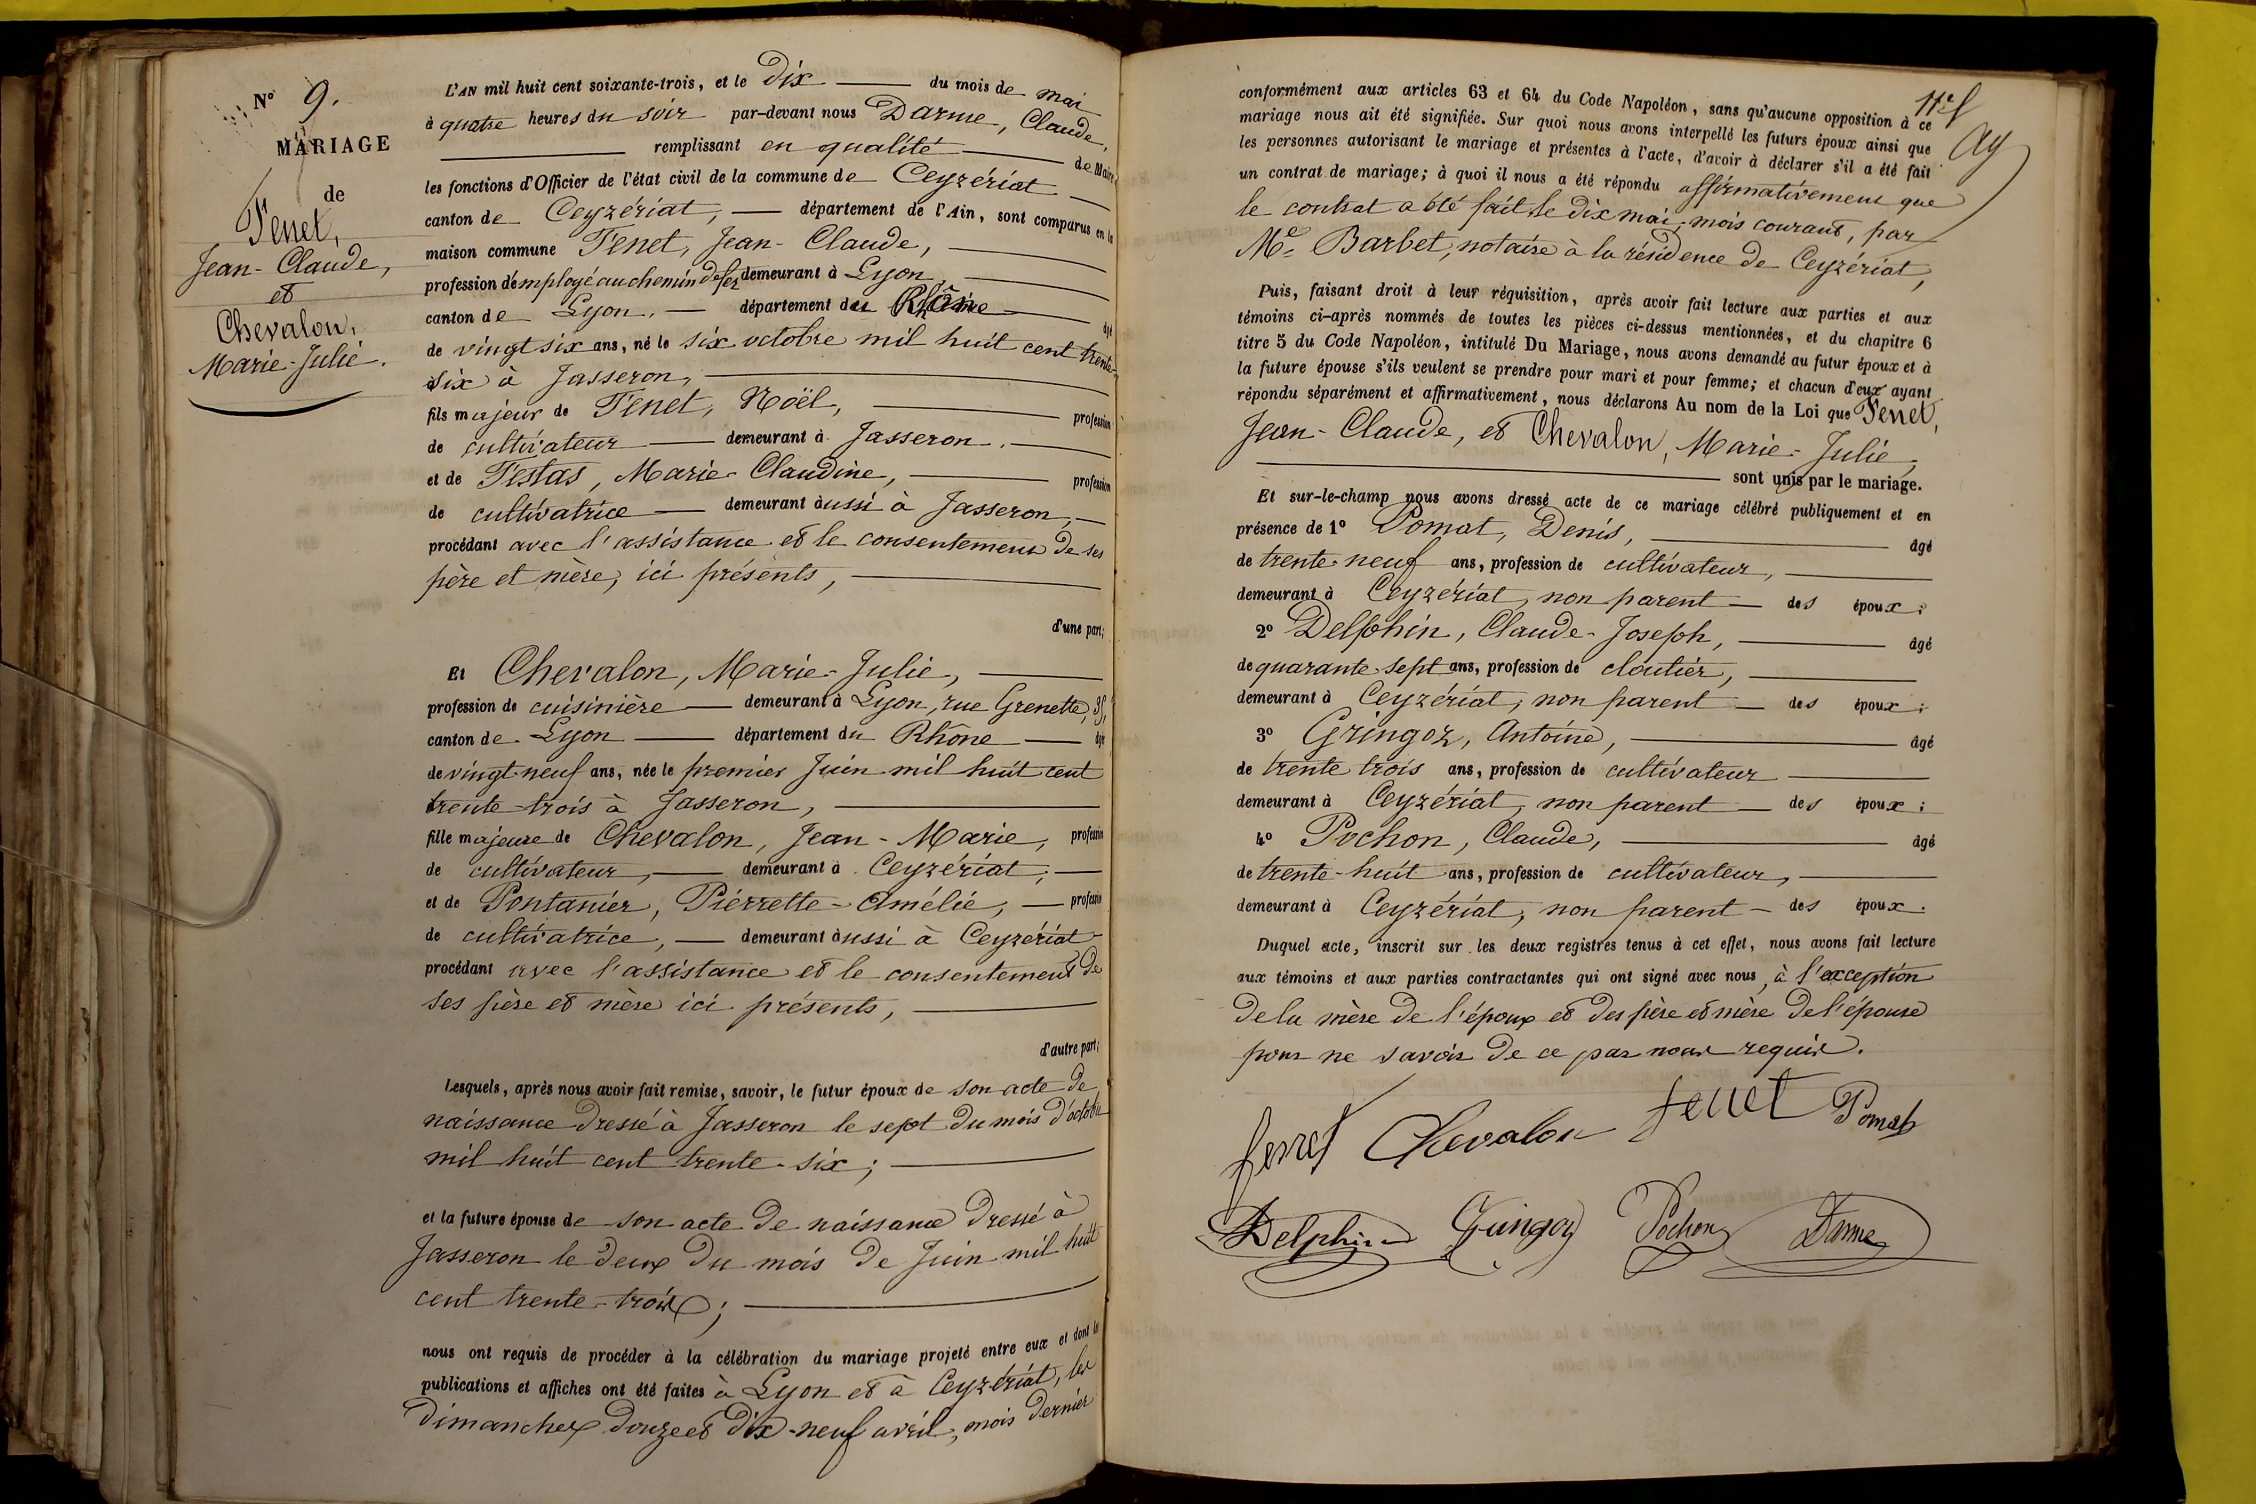 N° 9.
MARIAGE
de
Fenet,
Jean-Claude,
et
Chevalon,
Marie-Julie.
L'AN mil huit cent soixante-trois, et le Dix du mois de mai
à quatre heures du soir par-devant nous Darme, Claude,
remplissant en qualité de Maire
les fonctions d'Officier de l'état civil de la commune de Ceyzériat
canton de Ceyzériat, département de l'Ain, sont comparus en la
maison commune Fenet, Jean-Claude,
profession d'employé au chemin de fer demeurant à Lyon,
canton de Lyon, département du Rhône âgé
de vingt six ans, né le six octobre mil huit cent trente-
six à Jasseron,
fils majeur de Fenet, Noël, profession
de cultivateur demeurant à Jasseron,
et de Festas, Marie-Claudine, profession
de cultivatrice demeurant aussi à Jasseron,
procédant avec l'assistance et le consentement de ses
père et mère, ici présents,
d'une part;
Et Chevalon, Marie-Julie,
profession de cuisinière demeurant à Lyon, rue Grenette,
canton de Lyon département du Rhône âgée
de vingt-neuf ans, née le premier Juin mil huit cent
trente-trois à Jasseron,
fille majeure de Chevalon, Jean-Marie, profession
de cultivateur, demeurant à Ceyzériat,
et de Pontanier, Pierrette-Amélie, profession
de cultivatrice, demeurant aussi à Ceyzériat
procédant avec l'assistance et le consentement de
ses père et mère ici présents,
d'autre part;
Lesquels, après nous avoir fait remise, savoir, le futur époux de son acte de
naissance dressé à Jasseron le sept du mois d'octobre
mil huit cent trente-six;
et la future épouse de son acte de naissance dressé à
Jasseron le deux du mois de Juin mil huit
cent trente-trois;
nous ont requis de procéder à la célébration du mariage projeté entre eux et dont les
publications et affiches ont été faites à Lyon et à Ceyzériat, les
Dimanches douze et dix-neuf avril, mois dernier
conformément aux articles 63 et 64 du Code Napoléon, sans qu'aucune opposition à ce
mariage nous ait été signifiée. Sur quoi nous avons interpellé les futurs époux ainsi que
les personnes autorisant le mariage et présentes à l'acte, d'avoir à déclarer s'il a été fait
un contrat de mariage; à quoi il nous a été répondu affirmativement que
le contrat a été fait le dix mai, mois courant, par
Me Barbet, notaire à la résidence de Ceyzériat,
Puis, faisant droit à leur réquisition, après avoir fait lecture aux parties et aux
témoins ci-après nommés de toutes les pièces ci-dessus mentionnées, et du chapitre 6
titre 5 du Code Napoléon, intitulé Du Mariage, nous avons demandé au futur époux et à
la future épouse s'ils veulent se prendre pour mari et pour femme; et chacun d'eux ayant
répondu séparément et affirmativement, nous déclarons Au nom de la Loi que Fenet,
Jean-Claude, et Chevalon, Marie-Julie,
sont unis par le mariage.
Et sur-le-champ nous avons dressé acte de ce mariage célébré publiquement et en
présence de 1° Pomat, Denis, âgé
de trente-neuf ans, profession de cultivateur,
demeurant à Ceyzériat, non parent des époux;
2° Delphin, Claude-Joseph, âgé
de quarante-sept ans, profession de cloutier,
demeurant à Ceyzériat, non parent des époux;
3° Gringoz, Antoine, âgé
de trente trois ans, profession de cultivateur
demeurant à Ceyzériat, non parent des époux;
4° Pochon, Claude, âgé
de trente-huit ans, profession de cultivateur,
demeurant à Ceyzériat, non parent des époux.
Duquel acte, inscrit sur les deux registres tenus à cet effet, nous avons fait lecture
aux témoins et aux parties contractantes qui ont signé avec nous, à l'exception
de la mère de l'époux et des père et mère de l'épouse
pour ne savoir de ce par nous requis.
fenet Chevalon fenet Pomat
Delphin Gringoz Pochon Darme